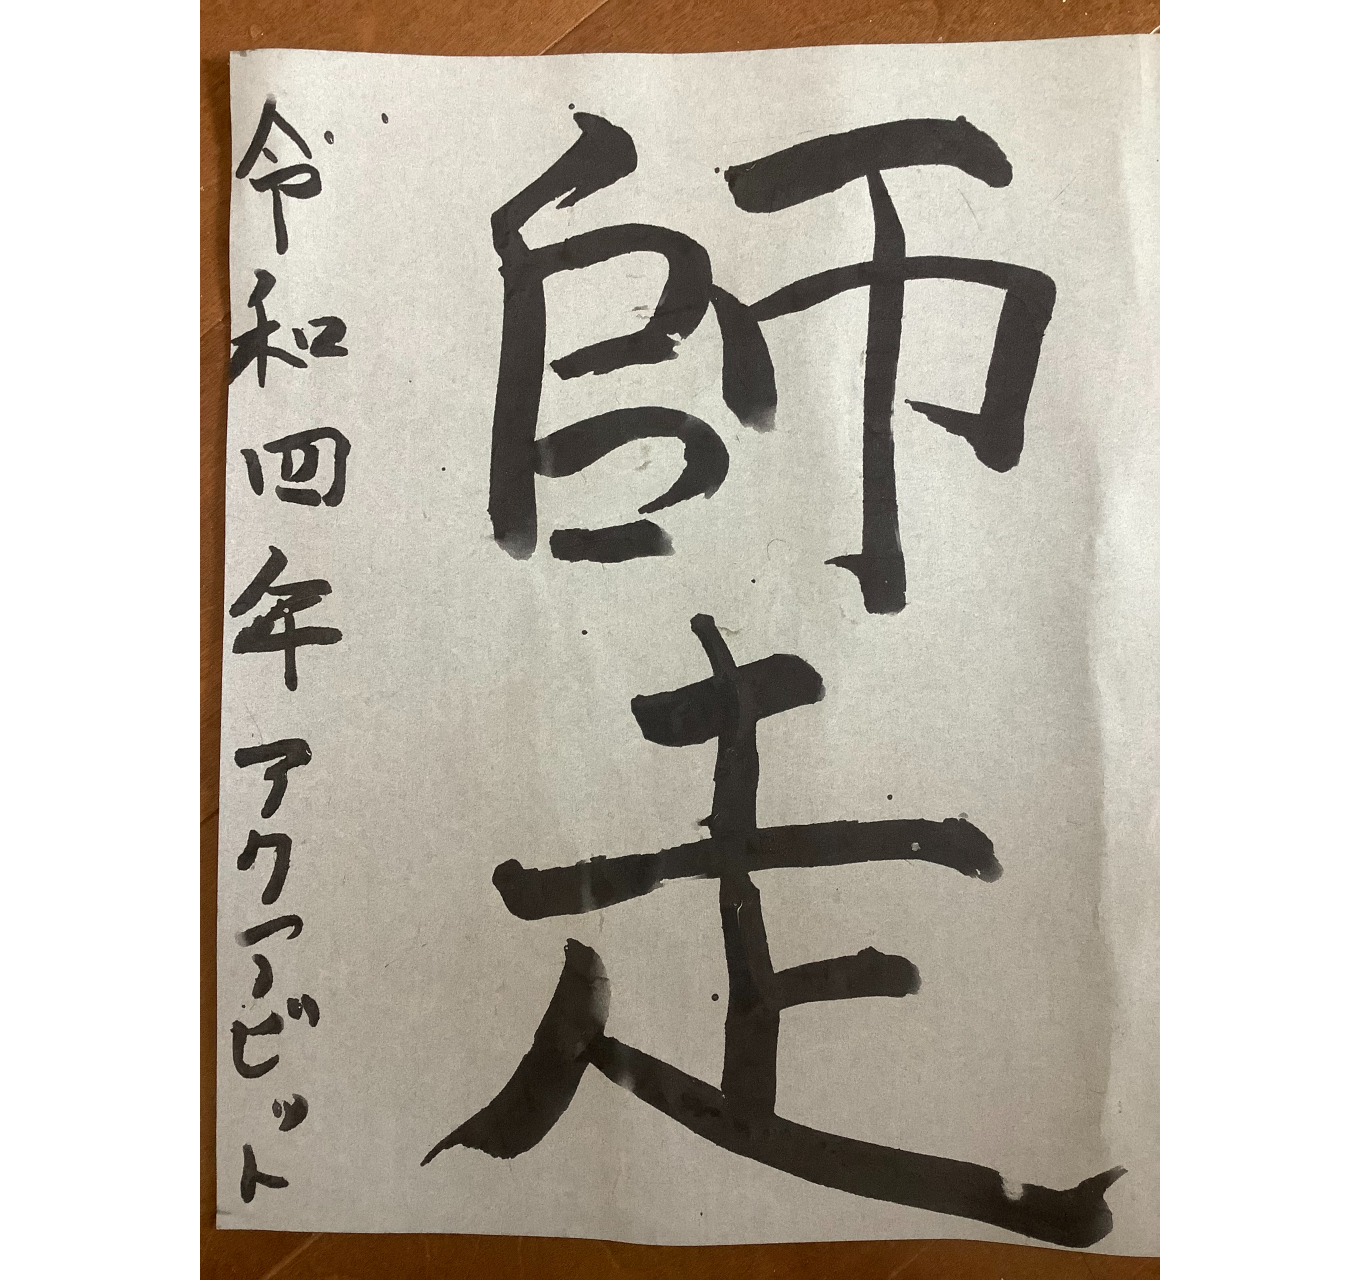 師走
令和四年アクアビット